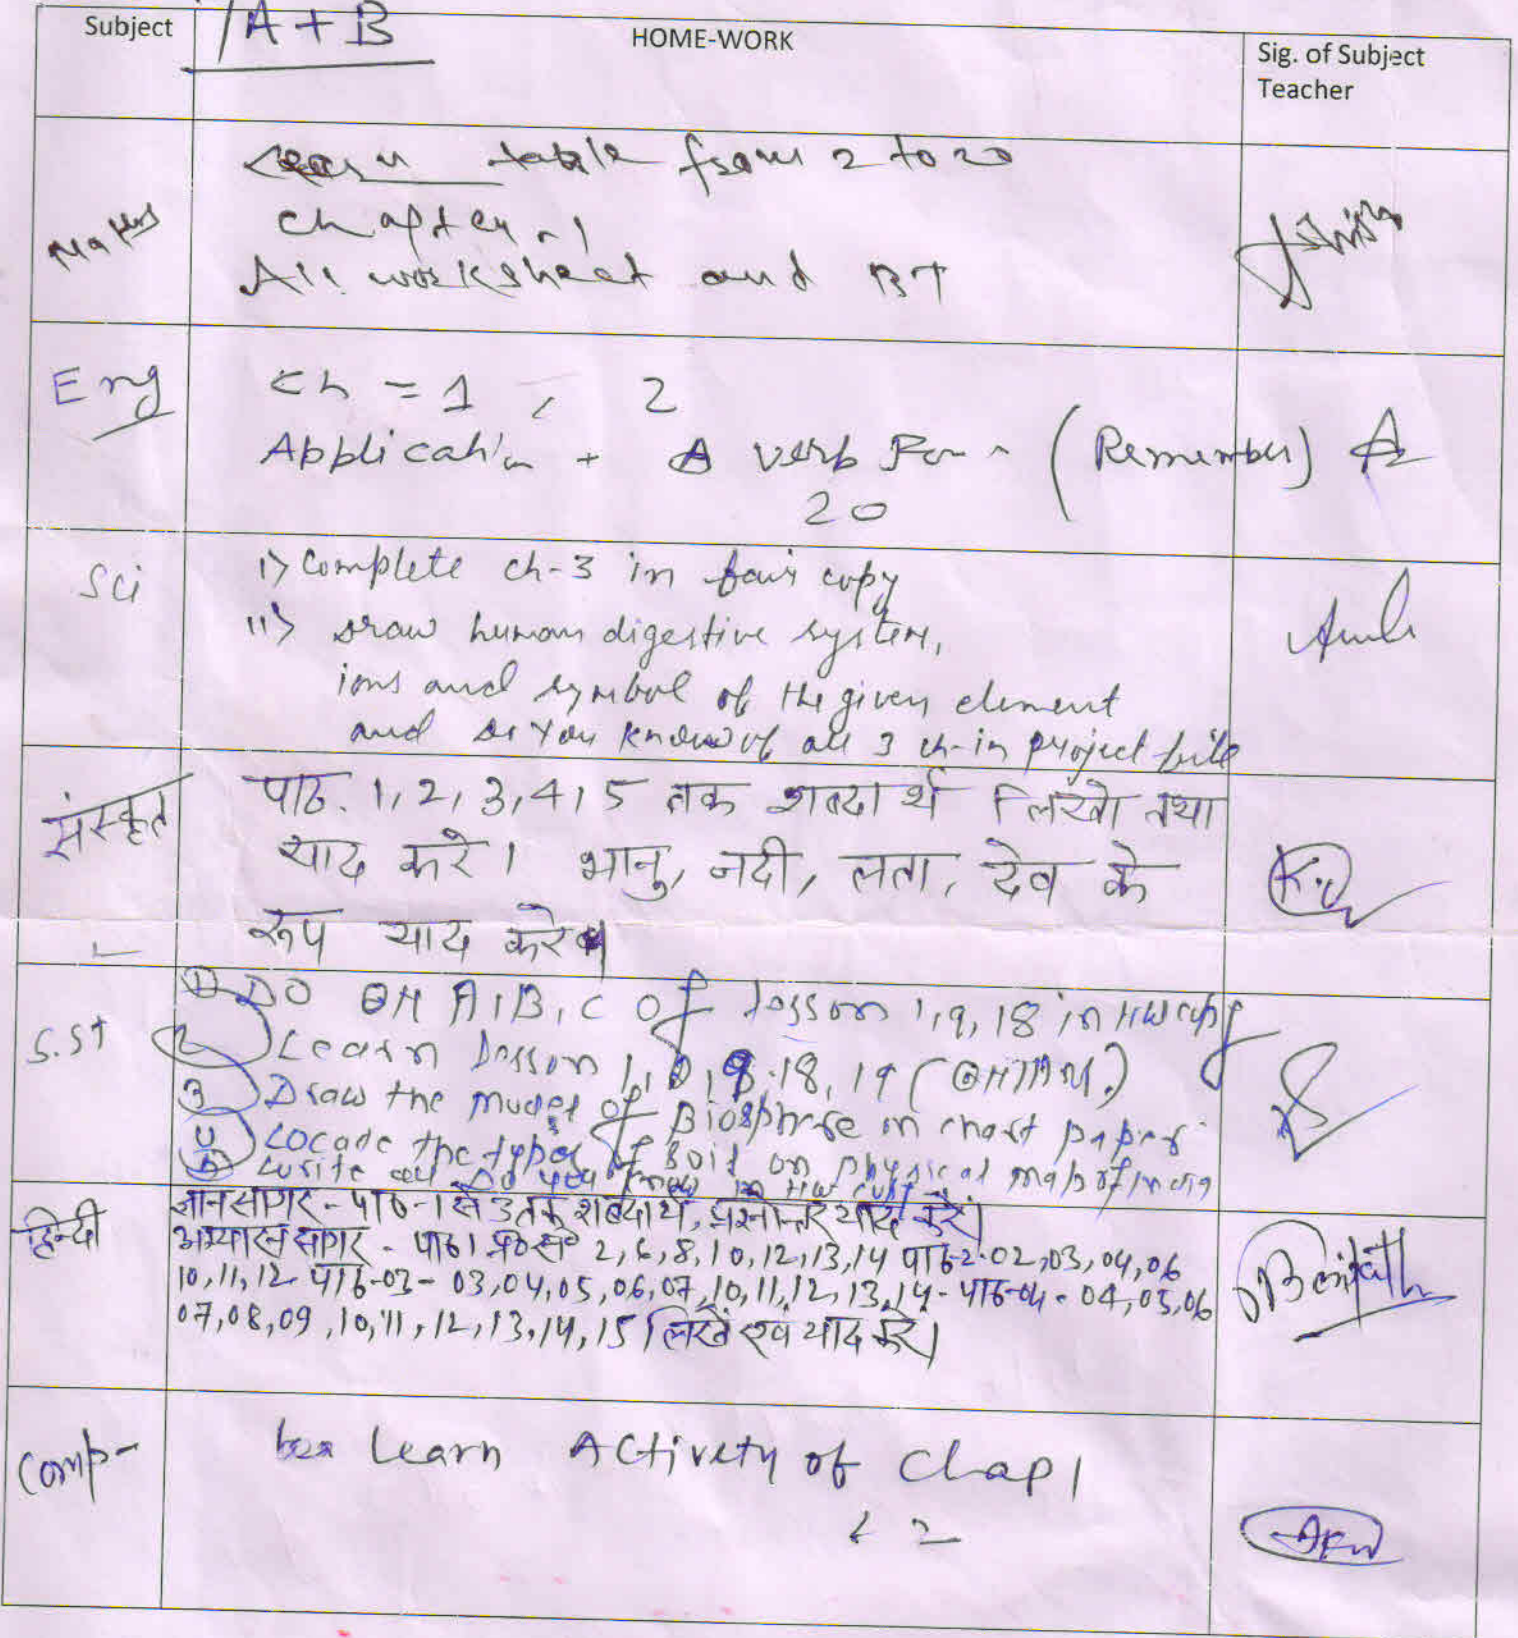 Subject /A+B HOME-WORK Sig. of Subject Teacher
Maths
Learn table from 2 to 20
Chapter - 1
All worksheet and BT
Eng
Ch = 1, 2
Application + verb Form (Remember)
20
Sci
i> Complete ch-3 in fair copy
ii> Draw human digestive system,
ions and symbol of the given element
and do you know of all 3 ch-in project file
संस्कृत
पाठ. 1, 2, 3, 4, 5 तक शब्दार्थ लिखो तथा
याद करे। भानु, नदी, लता, देव के
रूप याद करे।
S.St
1 DO A, B, C of lesson 1, 9, 18 in HW copy
2 Learn lesson 18, 19
3 Draw the model of Biosphre in chart paper
4 Locade the types of soil on physical map of India
5 write all Do you know in HW copy
हिन्दी
ज्ञानसागर - पाठ-1 से 3 तक शब्दार्थ, प्रश्नोत्तर याद करें।
अभ्यास सागर - पाठ 1 2, 6, 8, 10, 12, 13, 14 पाठ-2. 02, 03, 04, 06
10, 11, 12 पाठ-03 - 03, 04, 05, 06, 07, 10, 11, 12, 13, 14 - पाठ-04 - 04, 05, 06
07, 08, 09, 10, 11, 12, 13, 14, 15 लिखें एवं याद करें।
Comp-
Learn Activety of Chap 1
& 2